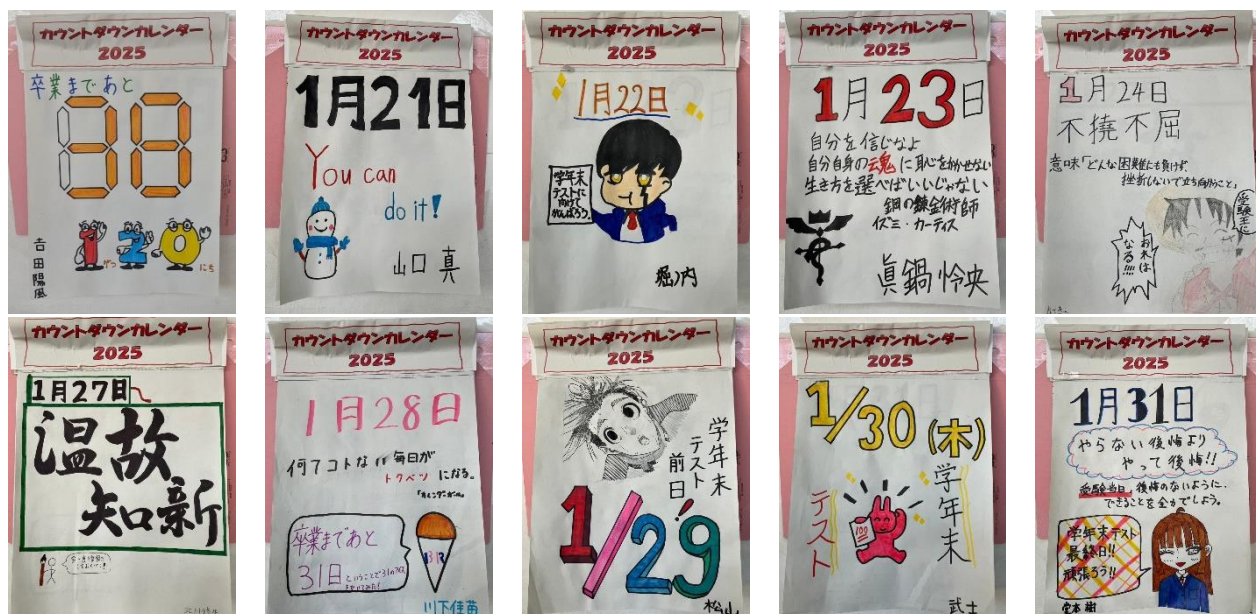 カウントダウンカレンダー
2025
卒業まであと
38
1がつ20にち
吉田陽風
カウントダウンカレンダー
2025
1月21日
You can
do it!
山口 真
カウントダウンカレンダー
2025
1月22日
学年末
テストに
向けて
がんばろう。
堀ノ内
カウントダウンカレンダー
2025
1月23日
自分を信じなよ
自分自身の魂に恥をかかせない
生き方を選べばいいじゃない
鋼の錬金術師
イズミ・カーティス
眞鍋怜央
カウントダウンカレンダー
2025
1月24日
不撓不屈
意味「どんな困難にも負けず、
挫折しないで立ち向かうこと」
受験王に
お末は
なる!!!!
カウントダウンカレンダー
2025
1月27日
温故
知新
カウントダウンカレンダー
2025
1月28日
何てコトない毎日が
トクベツになる。
卒業まであと
31日
31
川下佳苗
カウントダウンカレンダー
2025
学年末
テスト
前日!
1/29
松山
カウントダウンカレンダー
2025
1/30(木)
学年末
テスト
100
武士
カウントダウンカレンダー
2025
1月31日
やらない後悔より
やって後悔!!
受験当日、後悔のないように、
できることを全力でしよう。
学年末テスト
最終日!!
頑張ろう!!
堂本 樹